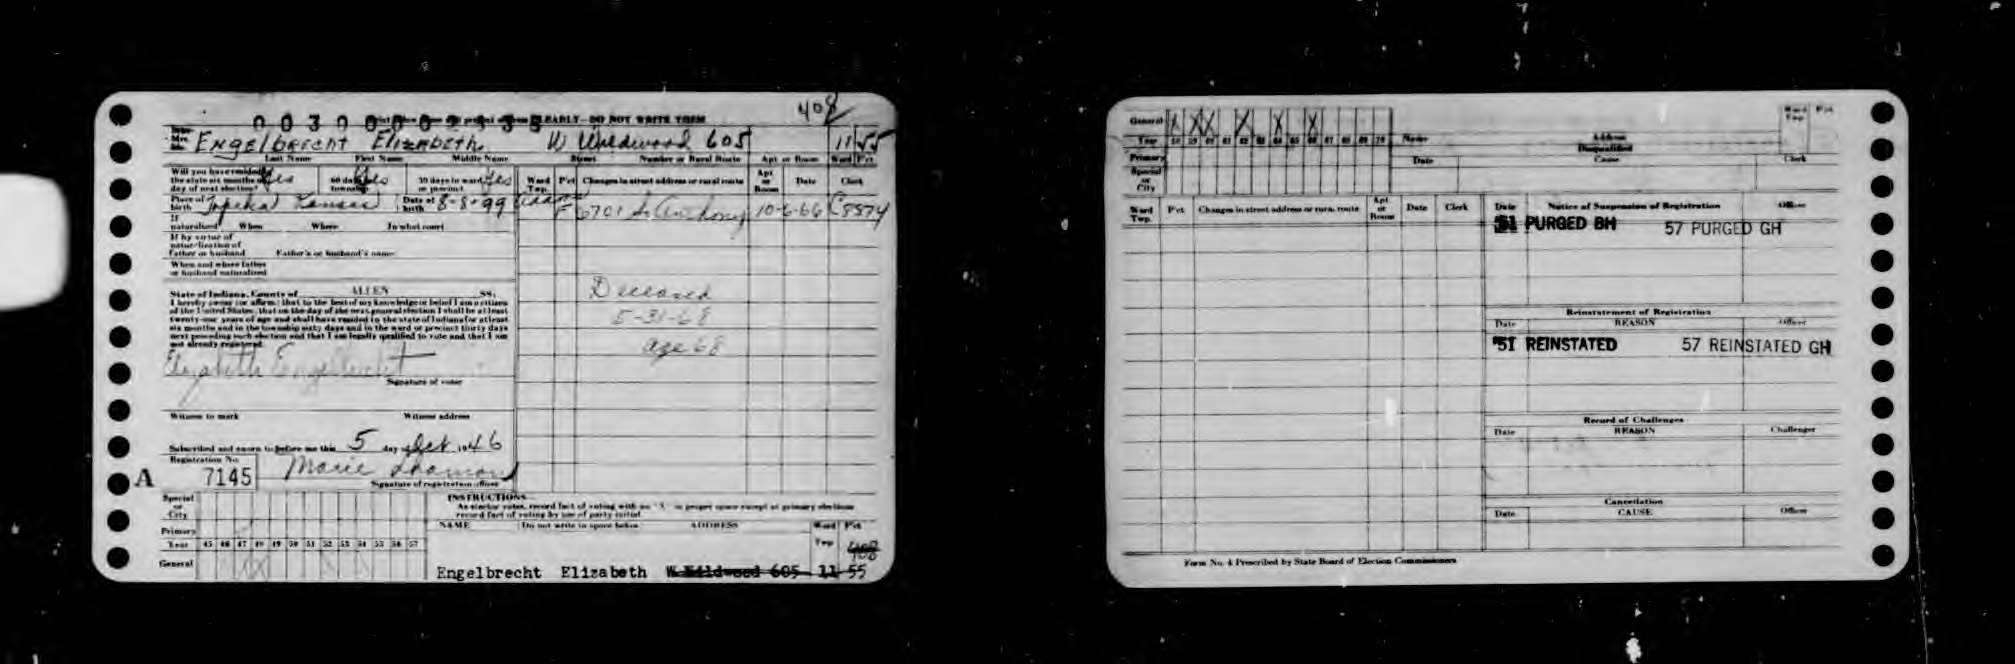 408
EARLY—DO NOT WRITE THEM
Mrs. Engelbrecht Elizabeth W Wildwood 605 11 55
Last Name First Name Middle Name Street Number or Rural Route Apt or Room Ward Pct
Will you have resided in the state six months on day of next election? Yes 60 days in township Yes 30 days in ward or precinct Yes
Ward Twp. Pct Changes in street address or rural route Apt or Room Date Clerk
Place of birth Topeka Kansas Date of birth 8-8-99
Adams F 6701 So Anthony 10-6-66 C8574
If naturalized When Where In what court
If by virtue of naturalization of father or husband Father's or husband's name
When and where father or husband naturalized
State of Indiana, County of ALLEN SS:
I hereby swear (or affirm) that to the best of my knowledge or belief I am a citizen
of the United States, that on the day of the next general election I shall be at least
twenty-one years of age and shall have resided in the state of Indiana for at least
six months and in the township sixty days and in the ward or precinct thirty days
next preceding such election and that I am legally qualified to vote and that I am
not already registered.
Deceased
5-31-68
age 68
Elizabeth Engelbrecht
Signature of voter
Witness to mark Witness address
Subscribed and sworn to before me this 5 day of Oct 1946
Registration No.
A 7145 Marie
Signature of registration officer
Special or City
Primary
Year 45 46 47 48 49 50 51 52 53 54 55 56 57
General
INSTRUCTIONS
As elector votes, record fact of voting with an "X" in proper space except at primary elections
record fact of voting by use of party initial.
NAME Do not write in space below ADDRESS Ward Twp. Pct
408
Engelbrecht Elizabeth W Wildwood 605 11 55
General
Year 58 59 60 61 62 63 64 65 66 67 68 69 70
Primary
Special or City
Name Address Ward Twp. Pct
Disqualified
Date Cause Clerk
Ward Twp. Pct Changes in street address or rural route Apt or Room Date Clerk
Date Notice of Suspension of Registration Officer
'51 PURGED BH 57 PURGED GH
Reinstatement of Registration
Date REASON Officer
'51 REINSTATED 57 REINSTATED GH
Record of Challenges
Date REASON Challenger
Cancellation
Date CAUSE Officer
Form No. 4 Prescribed by State Board of Election Commissioners